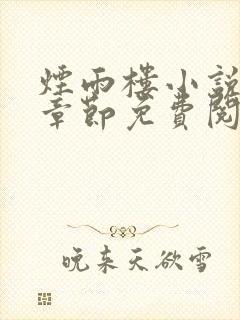 煙雨樓小説
章節免費閱
晚来天欲雪